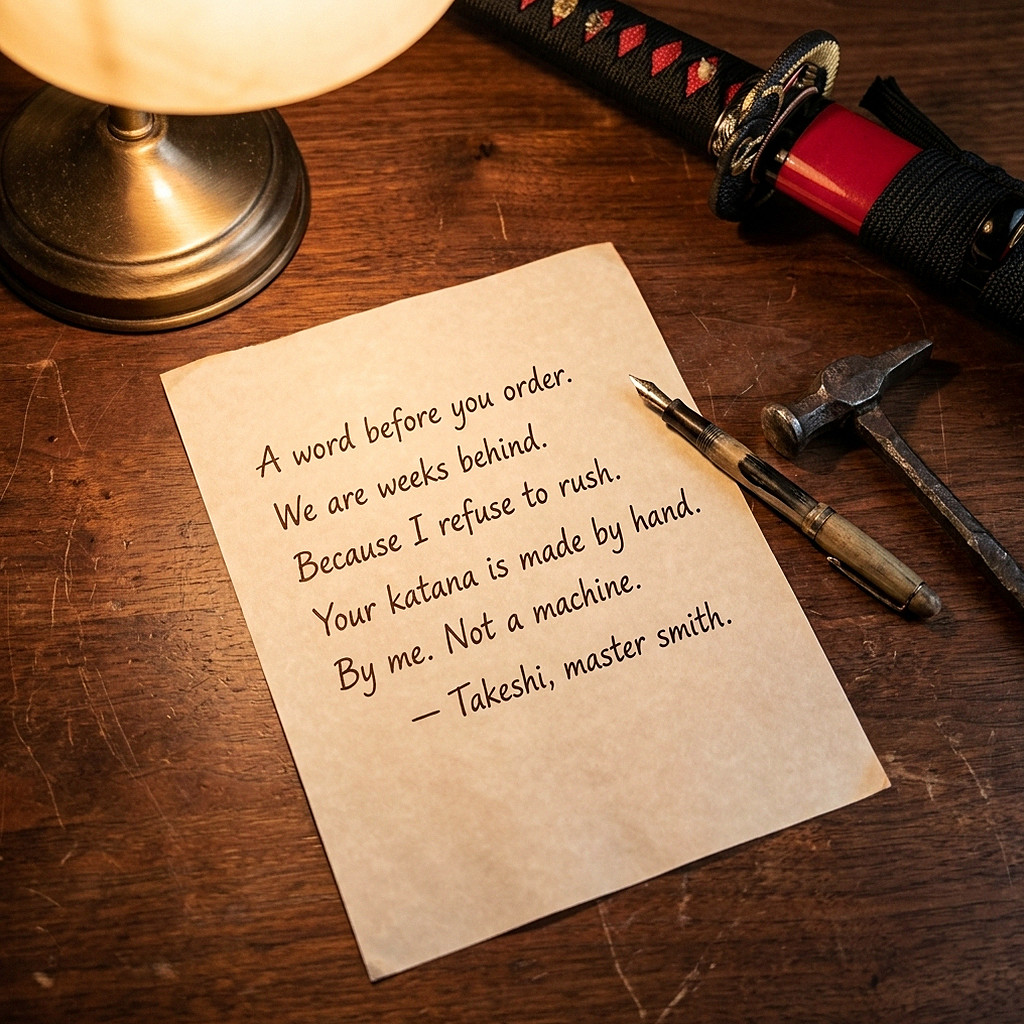 A word before you order.
We are weeks behind.
Because I refuse to rush.
Your katana is made by hand.
By me. Not a machine.
— Takeshi, master smith.